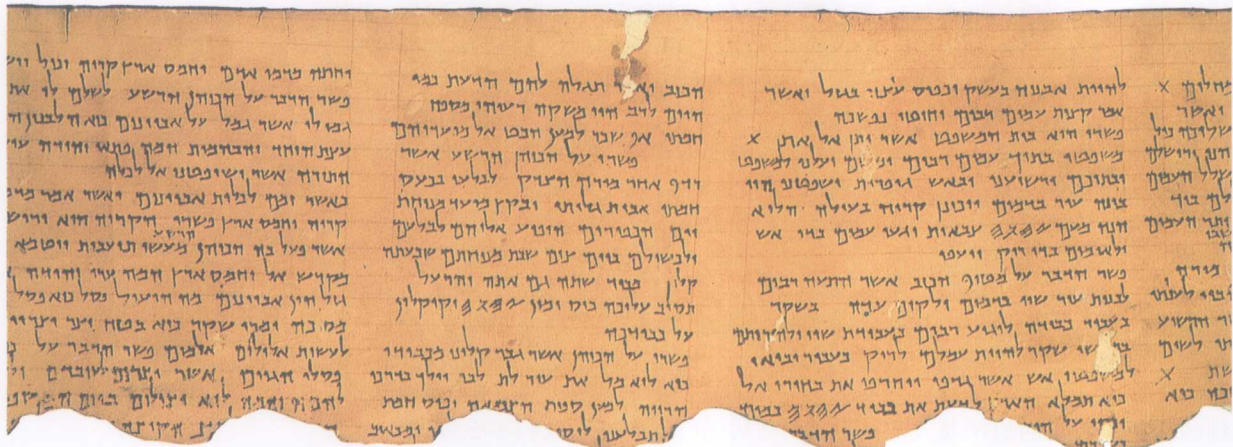 מחלים X
ואשר
העמים
להיות אבניה בעשק וכפיס עיצה בגזל ואשר
אמר קצות עמים רבים וחוטי נפשכה
פשרו הוא בית המשפט אשר יתן אל את X
משפטו בתוך עמים רבים ומשם יעלנו למשפט
ובתוכם ירשיענו ובאש גופרית ישפטנו הוי
בונה עיר בדמים ויכונן קריה בעולה הלוא
הנה מעם 𐤉𐤄𐤅𐤄 צבאות יגעו עמים בדי אש
ולאומים בדי ריק ייעפו
פשר הדבר על מטיף הכזב אשר התעה רבים
לבנות עיר שוו בדמים ולקים עדה בשקר
בעבור כבודה לוגיע רבים בעבודת שוו ולהרותם
שקר להיות עמלם לריק בעבור יבואו
למשפטי אש אשר גדפו ויחרפו את בחירי אל
כיא תמלא הארץ לדעת את כבוד 𐤉𐤄𐤅𐤄 כמים
יכסו על הים פשר הדבר
הכזב תגלה להם הדעת כמי
הים לרב הוי משקה רעיהו מספח
חמתו אף שכר למען הבט אל מועדיהם
פשרו על הכוהן הרשע אשר
רדף אחר מורה הצדק לבלעו בכעס
חמתו אבית גלותו ובקץ מועד מנוחת
יום הכפורים הופיע אליהם לבלעם
ולכשילם ביום צום שבת מנוחתם שבעתה
קלון מכבוד שתה גם אתה והרעל
תסוב עליכה כוס ימין 𐤉𐤄𐤅𐤄 וקיקלון
על כבודכה
פשרו על הכוהן אשר גבר קלונו מכבודו
כיא לוא מל את עור לת לבו וילך בדרכי
הרויה למען ספות הצמאה וכוס חמת
תבלענו
יחתה מדמי אדם וחמס ארץ קריה וכול
פשר הדבר על הכוהן הרשע לשלם לו את
גמולו אשר גמל על אביונים כיא הלבנון
עצת היחד והבהמות המה פתאי יהודה
התורה אשר ישופטנו אל לכלה
כאשר זמם לכלות אביונים ואשר אמר
קריה וחמס ארץ פשרו הקריה היא
אשר פעל בה הכוהן הרשע מעשי תועבות ויטמא
מקדש אל וחמס ארץ המה ערי יהודה
גזל הון אביונים מה הועיל פסל כיא פסל
מסכה ומרי שקר כיא בטח יצר
לעשות אלילים אלמים פשר הדבר על
פסלי הגוים אשר יצרום לעובדם
והמה לוא יצילום ביום